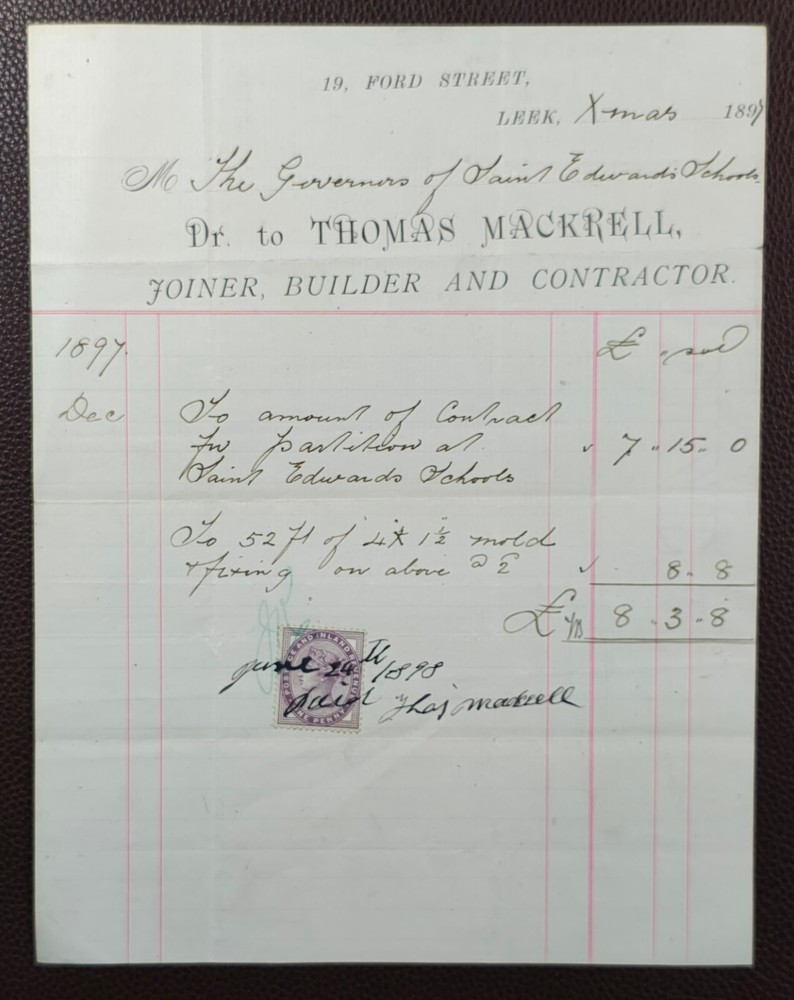 19, FORD STREET,
LEEK, Xmas 1897
M The Governors of Saint Edwards Schools
Dr. to THOMAS MACKRELL,
JOINER, BUILDER AND CONTRACTOR.
1897 £ s d
Dec To amount of Contract
for partition at 7 " 15 " 0
Saint Edwards Schools
To 52 ft of 4 x 1½ mold
& fixing on above @ 2 8 " 8
£ 8 " 3 " 8
POSTAGE AND INLAND REVENUE
ONE PENNY
June 24th / 1898
Paid Thos Mackrell